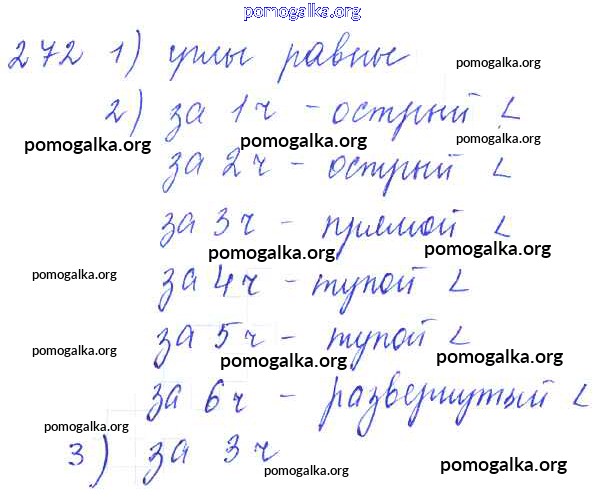 pomogalka.org
272 1) углы равные
pomogalka.org
2) за 1ч - острый L
pomogalka.org pomogalka.org pomogalka.org
за 2ч - острый L
за 3ч - прямой L
pomogalka.org pomogalka.org
pomogalka.org
за 4ч - тупой L
за 5ч - тупой L
pomogalka.org pomogalka.org pomogalka.org
за 6ч - развернутый L
pomogalka.org
3) за 3ч
pomogalka.org pomogalka.org